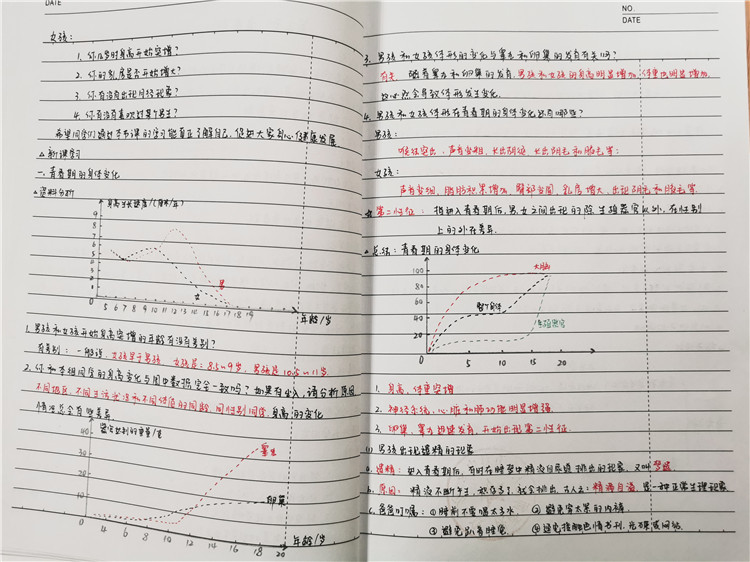 DATE
女孩:
1. 你几岁时身高开始突增?
2. 你的乳房是否开始增大?
3. 你有没有出现月经现象?
4. 你有没有喜欢过某个男生?
希望同学们通过本节课的学习能真正了解自己, 促进大家身心健康发展.
新课学习
一. 青春期的身体变化
资料分析
身高增长速度/(厘米/年)
9
8
7
6
5
4
3
2
0
男
女
5 6 7 8 9 10 11 12 13 14 15 16 17 18 19
年龄/岁
1. 男孩和女孩开始身高突增的年龄有没有差别?
有差别: 一般说, 女孩早于男孩 女孩是: 8.5~9岁, 男孩是10.5~11岁
2. 你和本组同学的身高变化与图中数据完全一致吗? 如果有出入, 请分析原因
不同地区, 不同生活状况和不同体质的同龄, 同性别同学, 身高的变化
情况总会有些差异.
睾丸
40
30
20
10
0
卵巢
2 4 6 8 10 12 14 16 18 20
年龄/岁
NO.
DATE
3. 男孩和女孩体形的变化与睾丸和卵巢的发育有关吗?
有关. 随着睾丸和卵巢的发育, 男孩和女孩的身高明显增加, 体重也明显增加,
这必然会导致体形发生变化.
4. 男孩和女孩体形在青春期的身体变化还有哪些?
男孩:
喉结突出、声音变粗, 长出胡须, 长出阴毛和腋毛等;
女孩:
声音变细, 脂肪积累增加, 臀部变圆, 乳房增大, 出现阴毛和腋毛等.
第二性征: 指进入青春期后, 男女之间出现的除生殖器官以外, 在性别
上的外在差异.
总结: 青春期的身体变化
100
80
60
40
20
0
大脑
整个身体
生殖器官
5 10 15 20
1. 身高, 体重突增
2. 神经系统, 心脏和肺功能明显增强.
3. 卵巢, 睾丸迅速发育, 开始出现第二性征.
(1) 男孩出现遗精的现象
a. 遗精: 进入青春期后, 有时在睡梦中精液自尿道排出的现象, 又叫梦遗.
b. 原因: 精液不断产生, 积存多了, 就会排出, 古人云: 精满自溢, 是一种正常生理现象
c. 爸爸叮嘱: ① 睡前不要喝太多水 ② 避免穿太紧的内裤
③ 避免趴着睡觉 ④ 避免接触色情书刊, 光碟或网站.